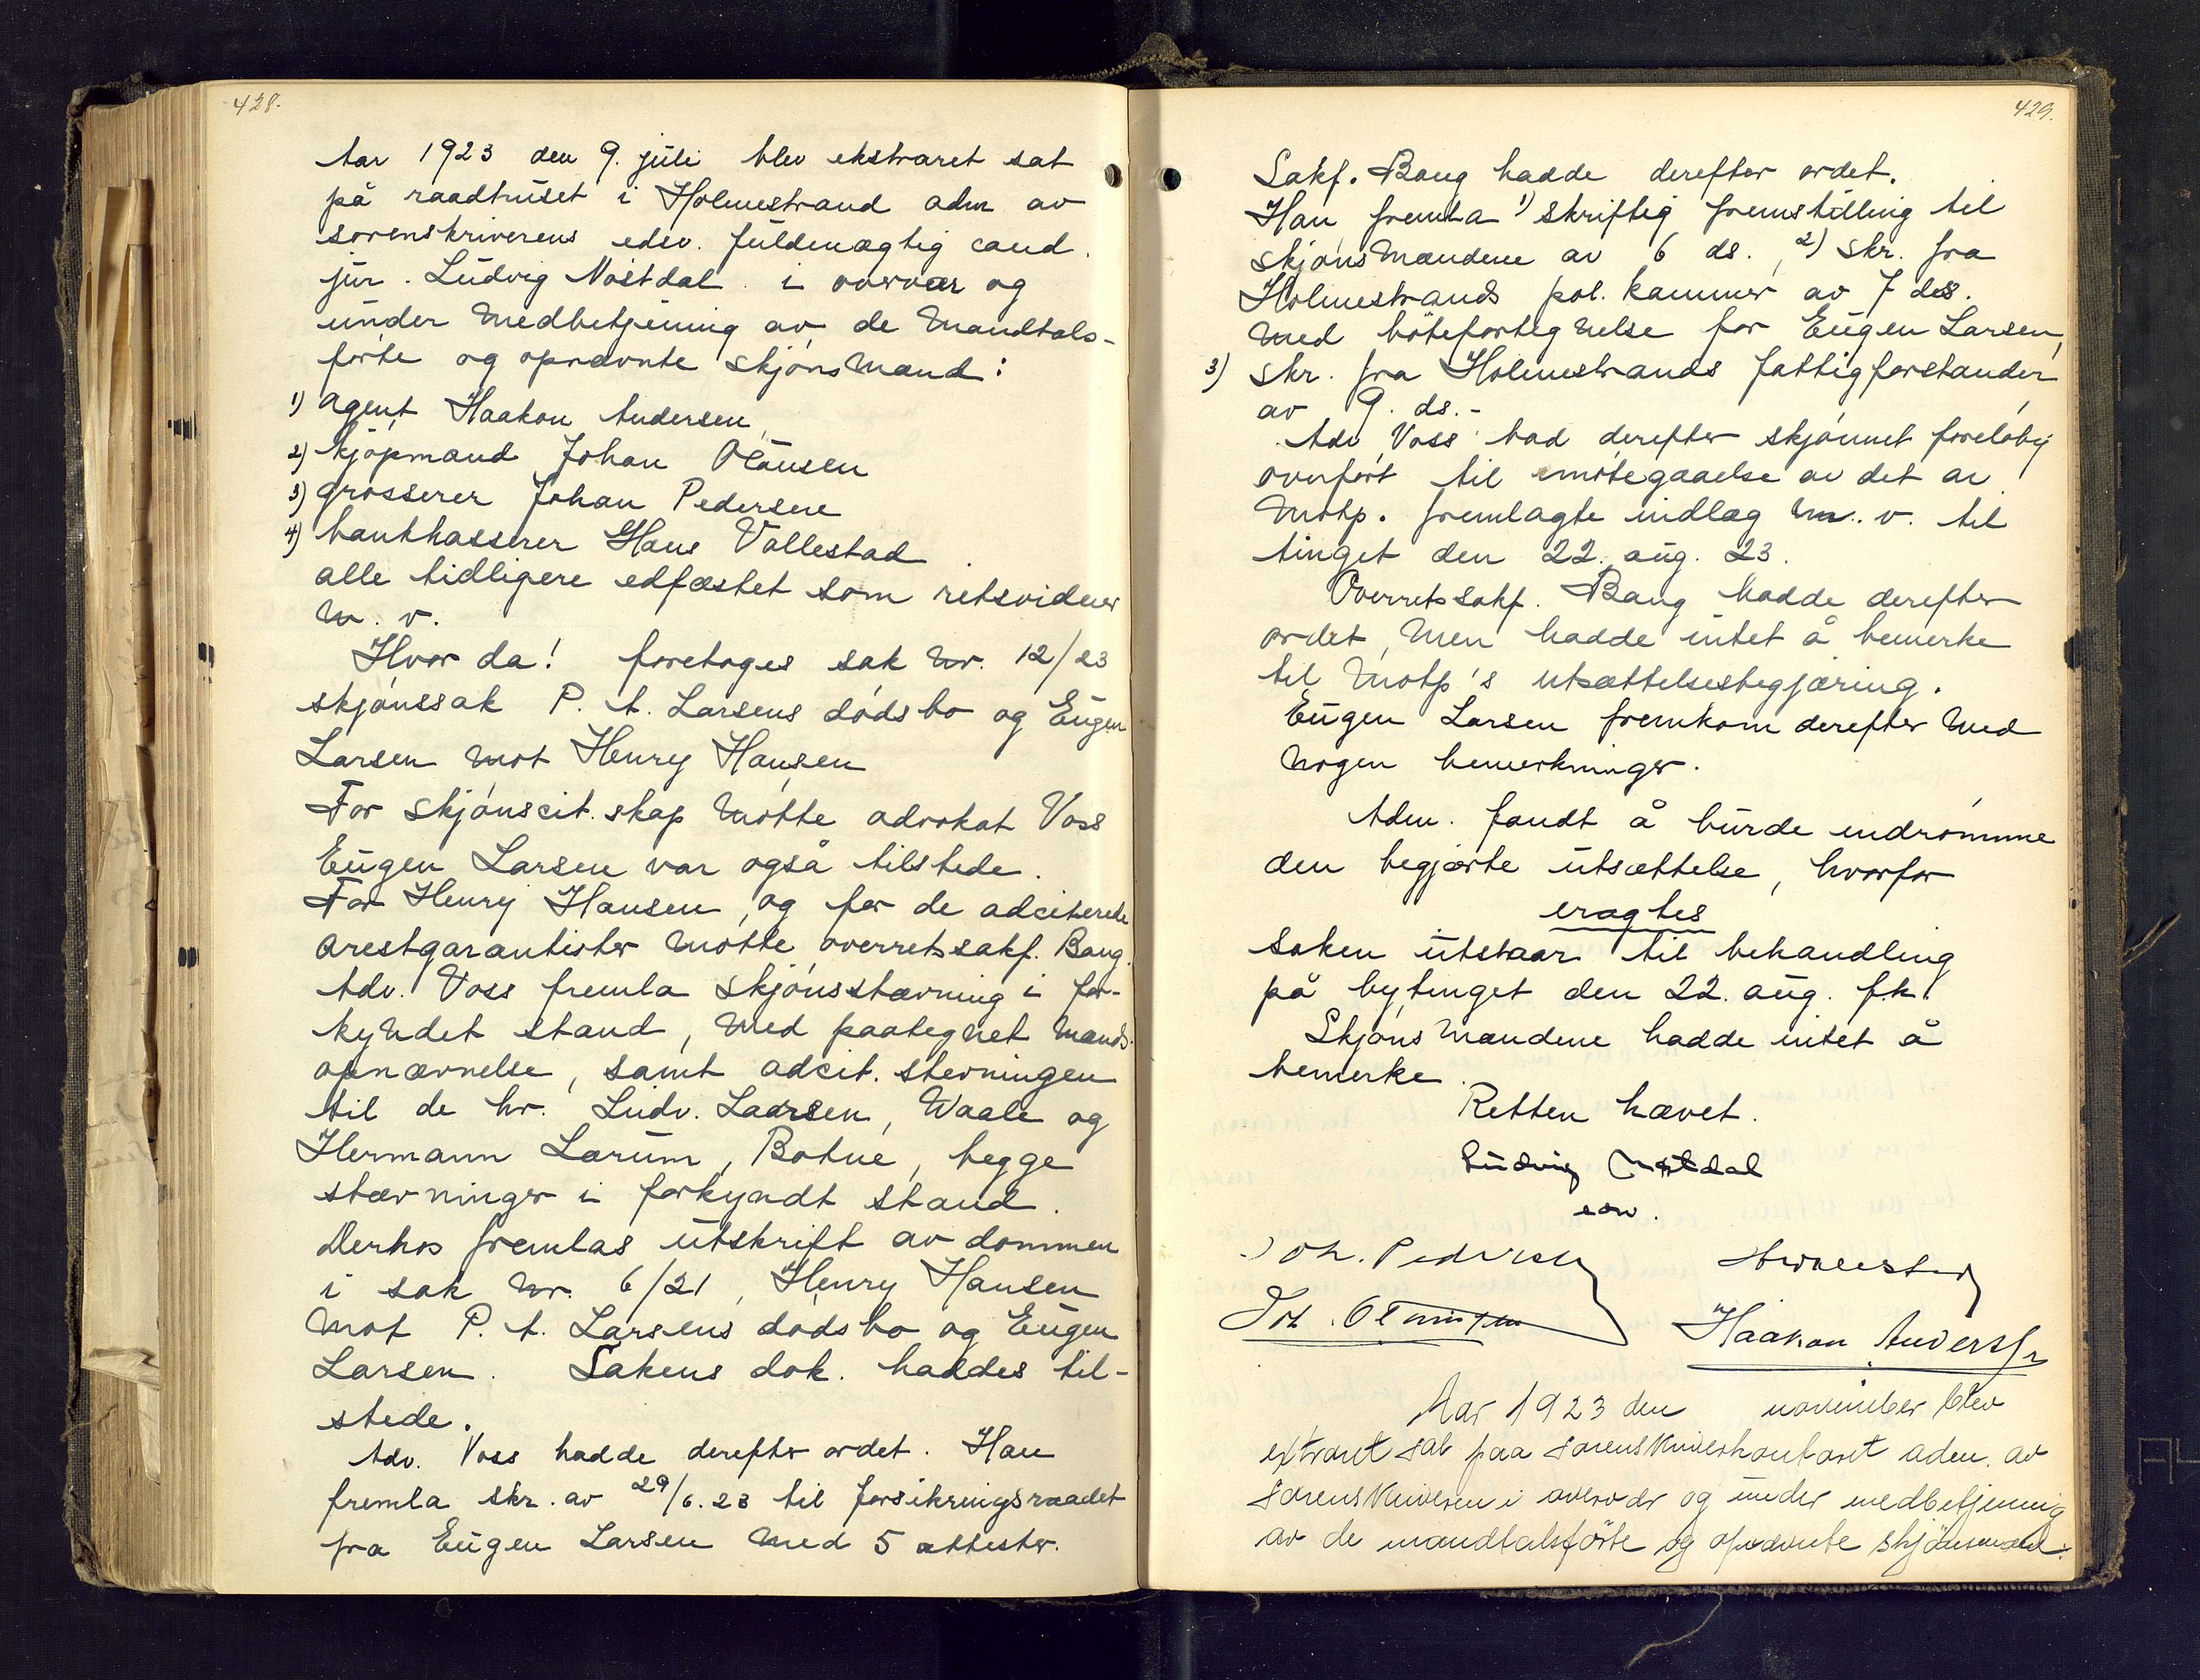 428.
Aar 1923 den 9. juli blev ekstraret sat
på raadhuset i Holmestrand adm av
sorenskriverens edsv. fuldmægtig cand.
jur. Ludvig Nøstdal i overvær og
under medbetjening av de mandtals-
førte og opnævnte skjønsmænd:
1) agent Haakon Andersen,
2) kjøpmand Johan Olausen
3) grosserer Johan Pedersen
4) bankkasserer Hans Vallestad
alle tidligere edfæstet som retsvidner
m. v.
Hvor da! foretoges sak nr. 12/23
skjønssak P. A. Larsens dødsbo og Eugen
Larsen mot Henry Hansen
For skjønscit.skap møtte advokat Voss
Eugen Larsen var også tilstede.
For Henry Hansen, og for de adciterede
arestgarantister møtte overretssakf. Bang.
Adv. Voss fremla skjønsstævning i for-
kyndet stand, med paategnet mands-
opnævnelse, samt adcit. stevningen
til de hr. Ludv. Laarsen, Waale og
Hermann Lørum, Botne, begge
stævninger i forkyndt stand.
Derhos fremlas utskrift av dommen
i sak nr. 6/21, Henry Hansen
mot P. A. Larsens dødsbo og Eugen
Larsen. Sakens dok. haddes til-
stede.
Adv. Voss hadde derefter ordet. Han
fremla skr. av 29/6.23 til forsikringsraadet
fra Eugen Larsen med 5 attester.
429.
Sakf. Bang hadde derefter ordet.
Han fremla 1) skriftlig fremstilling til
skjønsmændene av 6 ds., 2) skr. fra
Holmestrands pol. kammer av 7 ds.
med bøtefortegnelse for Eugen Larsen,
3) skr. fra Holmestrands fattigforstander
av 9. ds.-
Adv Voss bad derefter skjønnet foreløbig
overført til imøtegaaelse av det av
motp. fremlagte indlæg m. v. til
tinget den 22. aug. 23.
Overretssakf. Bang hadde derefter
ordet, men hadde intet å bemerke
til motp's utsættelsesbegjæring.
Eugen Larsen fremkom derefter med
nogen bemerkninger.
Adm. fandt å burde indrømme
den begjærte utsættelse, hvorfor
eragtes
saken utstaar til behandling
på bytinget den 22. aug. f.k.
Skjønsmændene hadde intet å
bemerke.
Retten hævet.
Ludvig Nøstdal
esv.
Joh. Pedersen
Joh. Olausen Haakon Andersen
Aar 1923 den november blev
extraret sat paa sorenskriverkontoret adm. av
sorenskriveren i overvær og under medbetjening
av de mandtalsførte og opnævnte skjønsmænd: